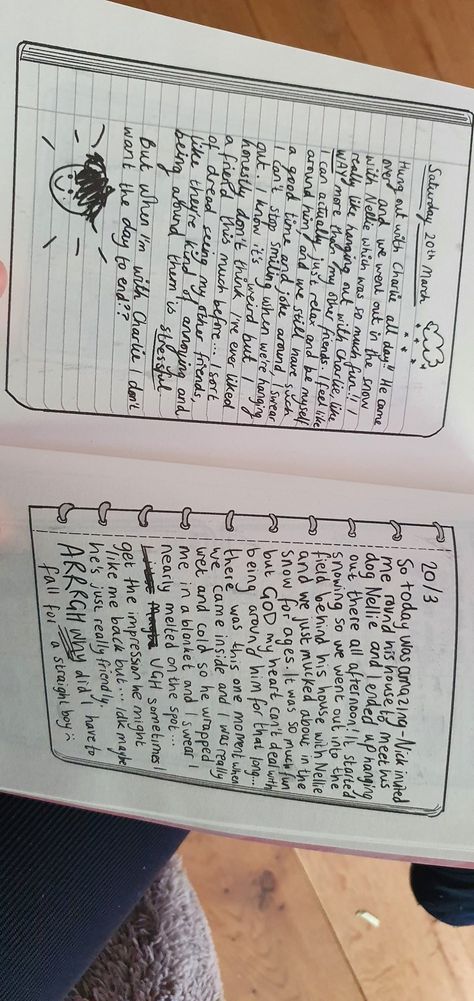 Saturday 20th March
Hung out with Charlie all day! He came
over and we went out in the snow
with Nellie which was so much fun!! I
really like hanging out with Charlie, like
WAY more than my other friends. I feel like
I can actually just relax and be myself
around him, and we still have such
a good time and joke around, I swear
I can't stop smiling when we're hanging
out. I know it's weird but I
honestly don't think I've ever liked
a friend this much before... I sort
of dread seeing my other friends,
like they're kind of annoying and
being around them is stressful
But when I'm with Charlie I don't
want the day to end??
20/3
So today was amazing - Nick invited
me round his house to meet his
dog Nellie and I ended up hanging
out there all afternoon! It started
snowing so we went out into the
field behind his house with Nellie
and we just mucked about in the
snow for ages. It was so much fun
but GOD my heart can't deal with
being around him for that long...
there was this one moment when
we came inside and I was really
wet and cold so he wrapped
me in a blanket and I swear I
nearly melted on the spot...
UGH sometimes I
get the impression he might
like me back but... idk maybe
he's just really friendly.
ARRRGH WHY did I have to
fall for a straight boy :(